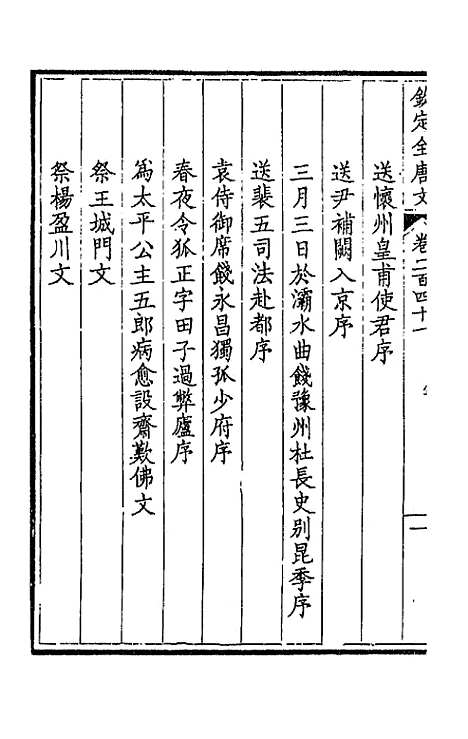 欽定全唐文 卷二百四十一
送懷州皇甫使君序
送尹補闕入京序
三月三日於灞水曲餞豫州杜長史别昆季序
送裴五司法赴都序
袁侍御席餞永昌獨孤少府序
春夜令狐正字田子過弊廬序
為太平公主五郎病愈設齋歎佛文
祭王城門文
祭楊盈川文